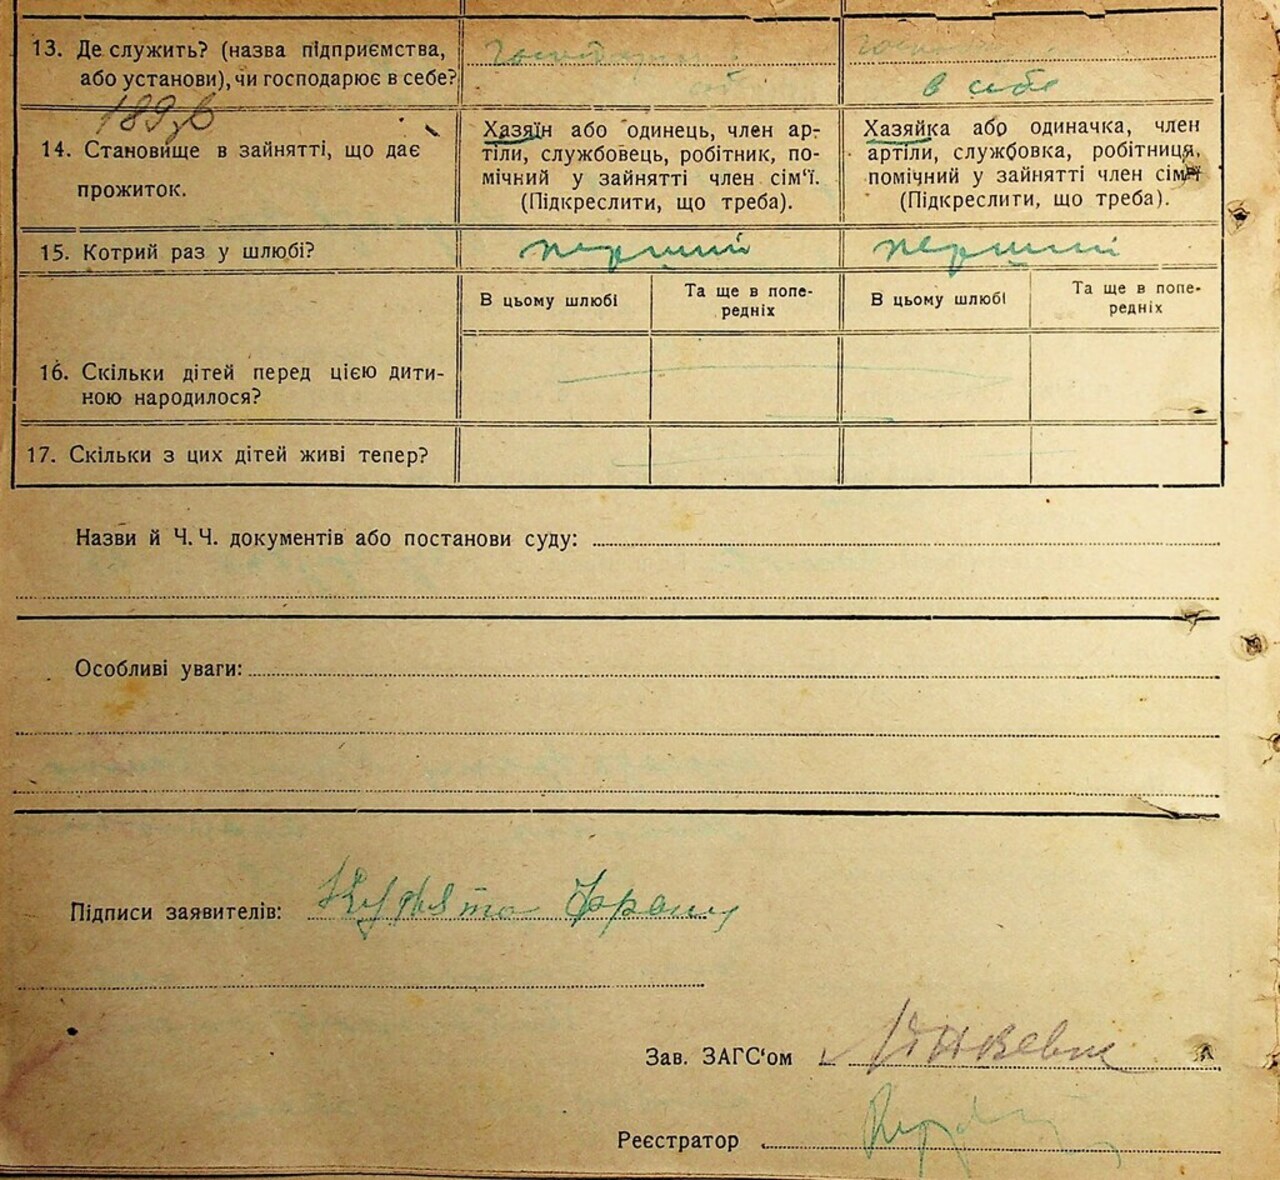 13. Де служить? (назва підприємства,
або установи), чи господарює в себе?
в себе
14. Становище в зайнятті, що дає
прожиток.
Хазяїн або одинець, член ар-
тіли, службовець, робітник, по-
мічний у зайнятті член сім'ї.
(Підкреслити, що треба).
Хазяйка або одиначка, член
артіли, службовка, робітниця,
помічний у зайнятті член сім'ї
(Підкреслити, що треба).
15. Котрий раз у шлюбі?
перший
перший
В цьому шлюбі
Та ще в попе-
редніх
В цьому шлюбі
Та ще в попе-
редніх
16. Скільки дітей перед цією дити-
ною народилося?
17. Скільки з цих дітей живі тепер?
Назви й Ч. Ч. документів або постанови суду:
Особливі уваги:
Підписи заявителів:
Зав. ЗАГС'ом
Реєстратор